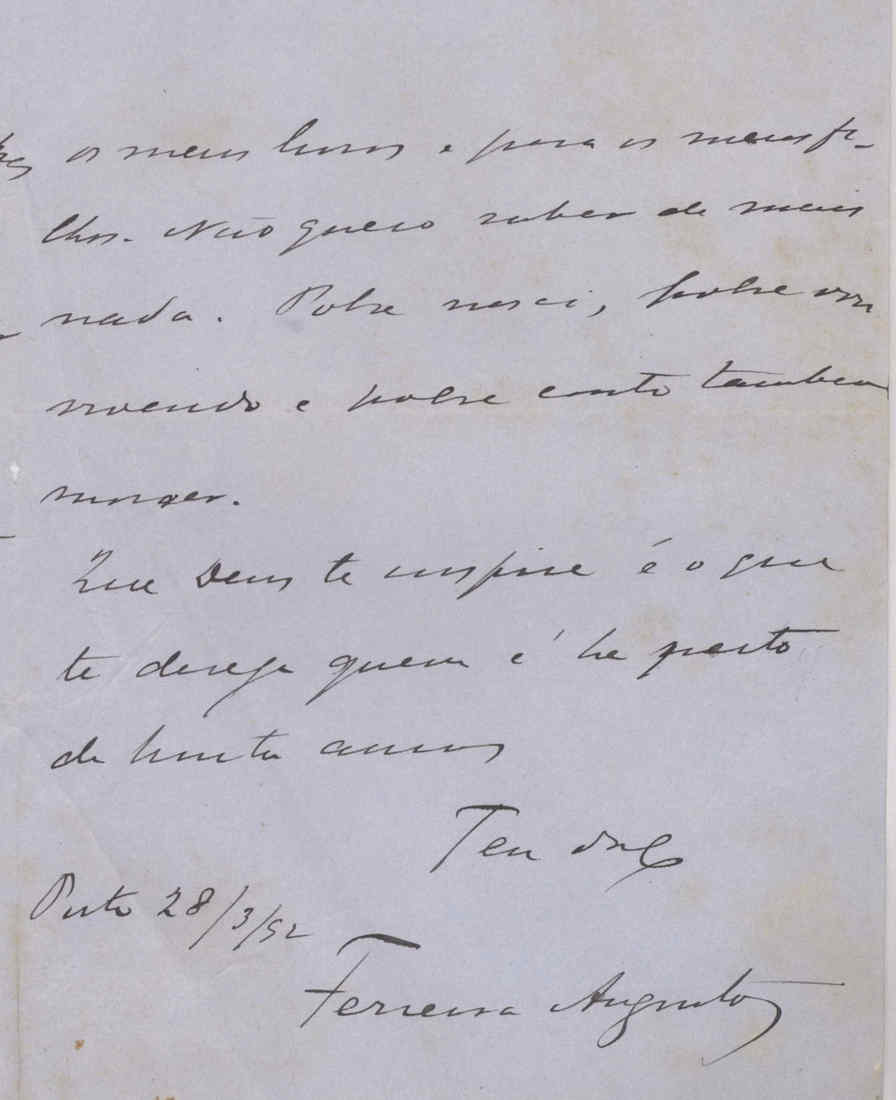 os meus livros e para os meus fi-
lhos. Não quero saber de mais
nada. Pobre nasci, pobre vou
vivendo e pobre conto tambem
morrer.
Que Deus te inspire é o que
te deseja quem é ha perto
de trinta annos
Teu
Porto 28/3/92
Ferreira Augusto